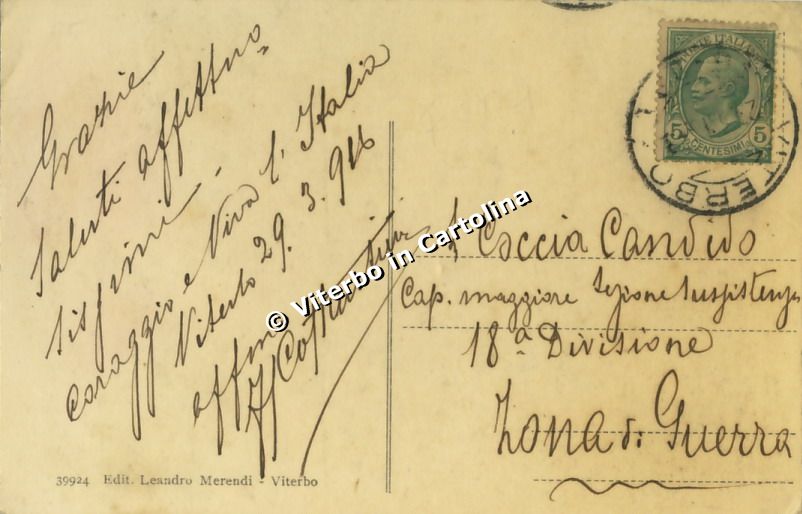 Grazie
Saluti affettuo=
sissimi -
coraggio e Viva l'Italia
Viterbo 29. 3. 916
affmo
POSTE ITALIANE
5 5
CENTESIMI
VITERBO
Coccia Candido
Cap. maggiore Sezione Sussistenza
18ª Divisione
Zona di Guerra
© Viterbo in Cartolina
39924 Edit. Leandro Merendi - Viterbo